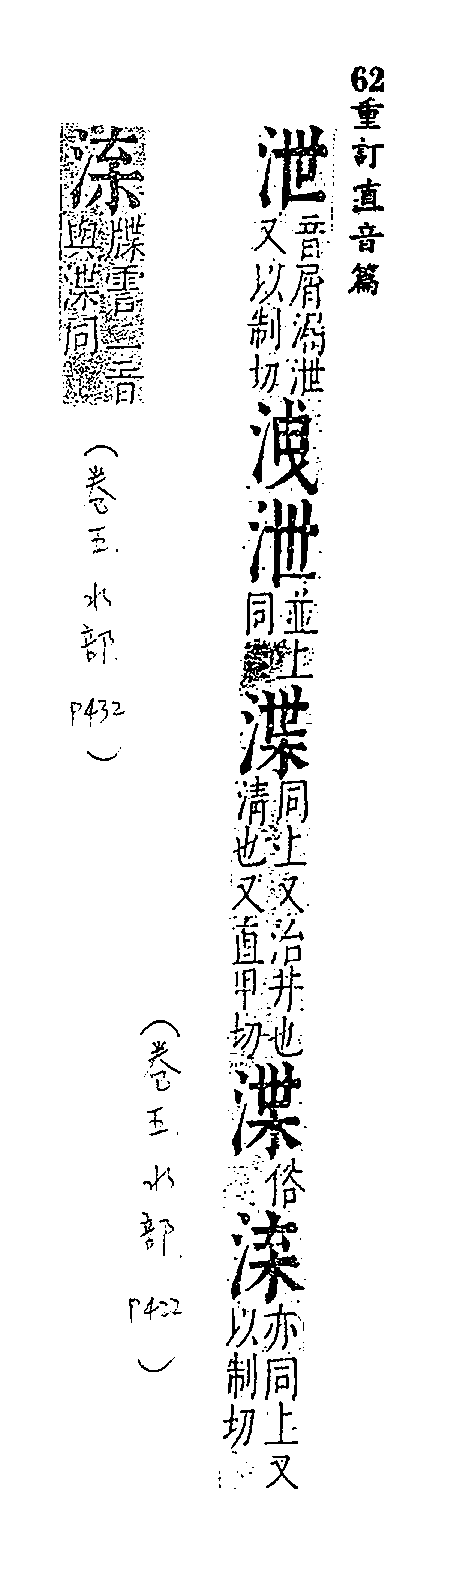 62重訂直音篇
泄
音屑漏泄
又以制切
洩
泄
並上
同
渫
同上又治井也
清也又直甲切
渫
俗
㳿
亦同上又
以制切
(卷五 水部 P422)
牒雲二音
與渫同
(卷五 水部 P432)